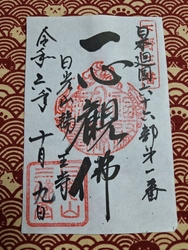 日本廻國六十六部第一番
一心觀佛
日光山
王寺
令和六年
十月九日